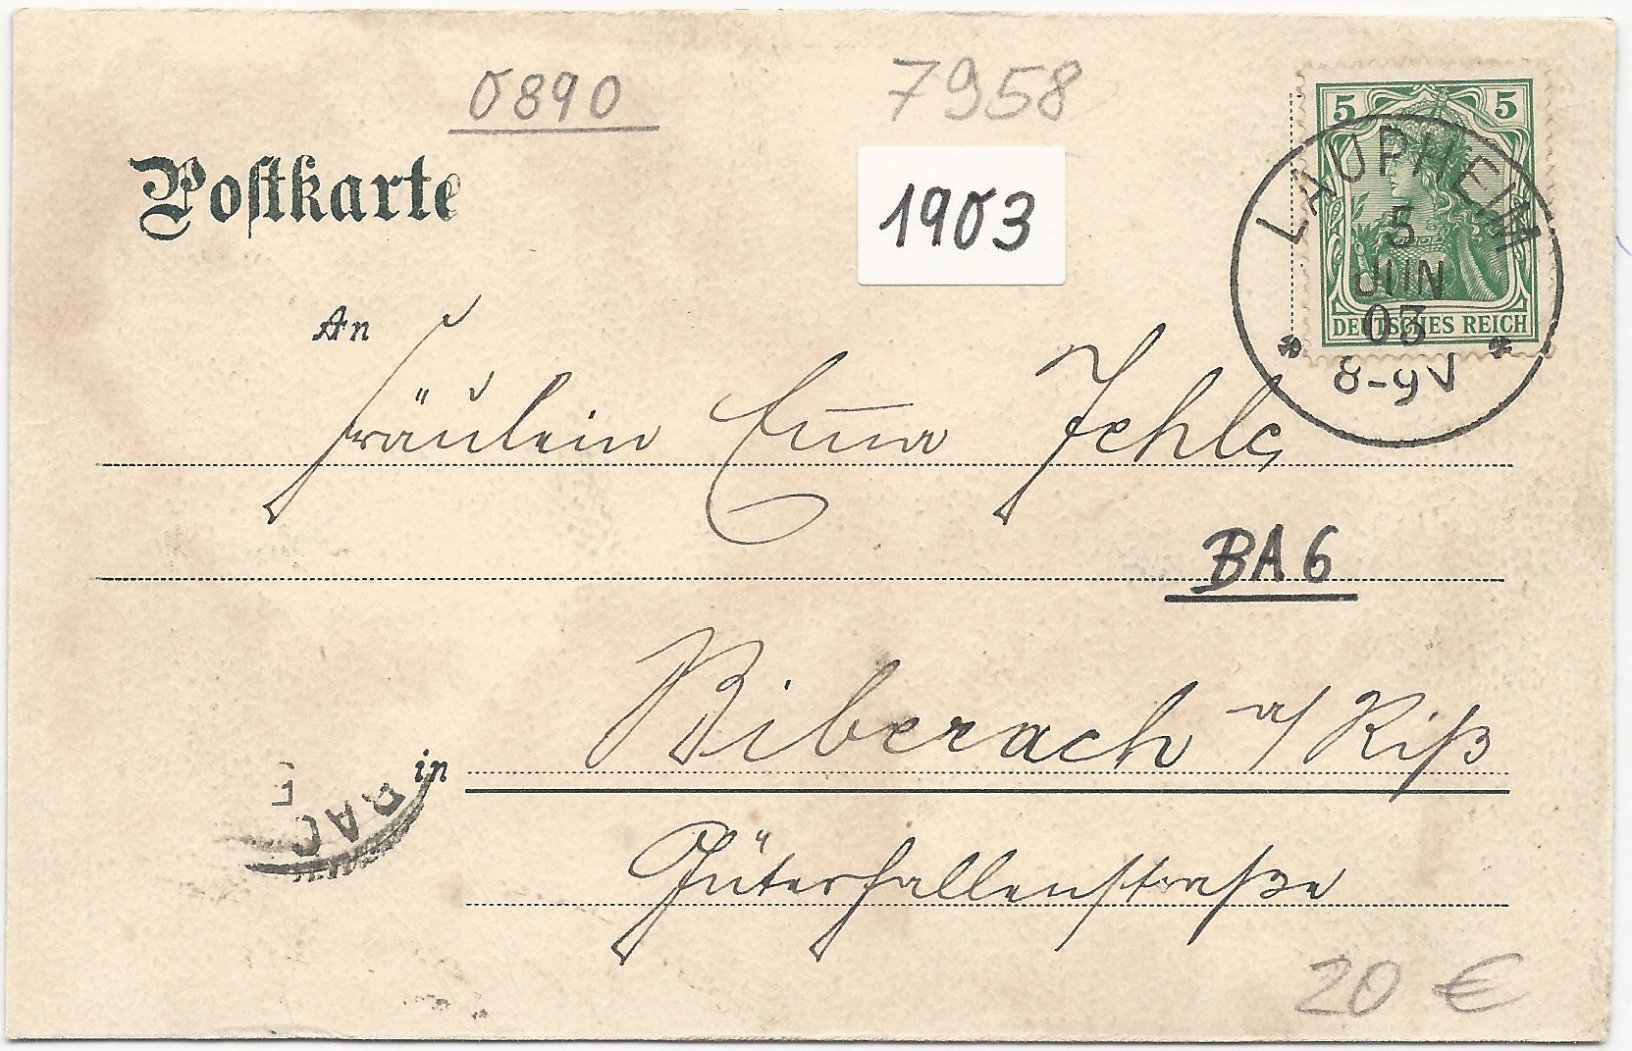 0890
7958
Postkarte
1903
5 5
DEUTSCHES REICH
LAUPHEIM
5
JUN
03
8-9V
An
Fräulein Emma Jehle
BA6
Biberach a/ Riß
in
RAC
Güterhallenstraße
20 €